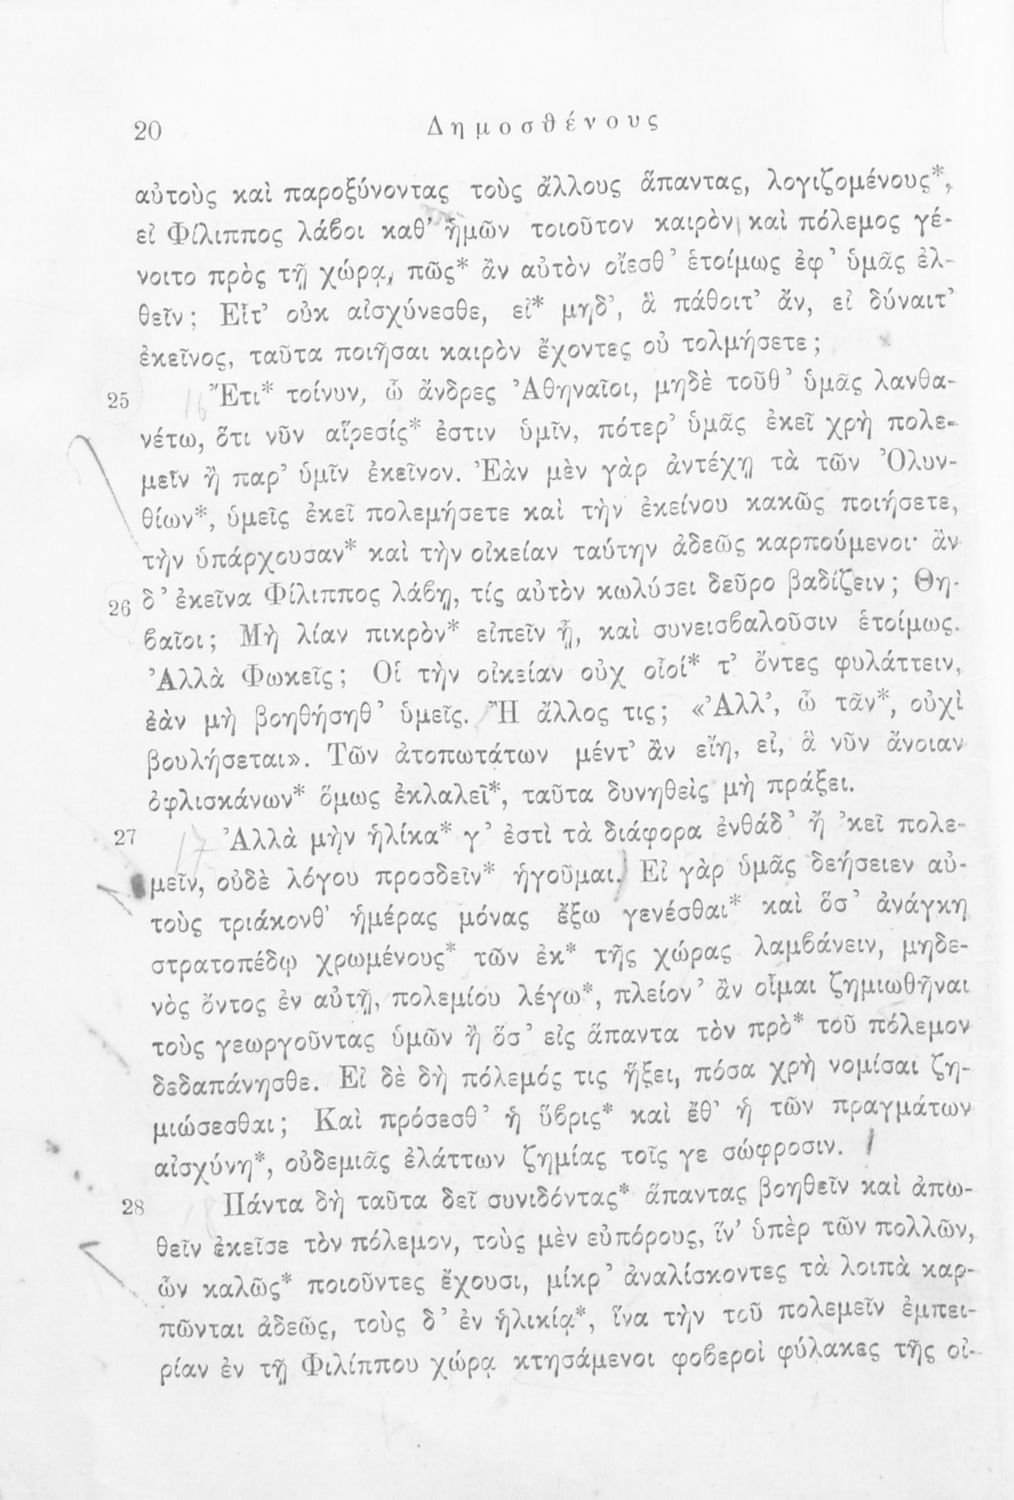 20
Δημοσθένους
αὐτοὺς καὶ παροξύνοντας τοὺς ἄλλους ἅπαντας, λογιζομένους*,
εἰ Φίλιππος λάϐοι καθ’ ἡμῶν τοιοῦτον καιρὸν καὶ πόλεμος γέ-
νοιτο πρὸς τῇ χώρᾳ, πῶς* ἂν αὐτὸν οἴεσθ’ ἑτοίμως ἐφ’ ὑμᾶς ἐλ-
θεῖν; Εἶτ’ οὐκ αἰσχύνεσθε, εἰ* μηδ’, ἃ πάθοιτ’ ἄν, εἰ δύναιτ’
ἐκεῖνος, ταῦτα ποιῆσαι καιρὸν ἔχοντες οὐ τολμήσετε;
25 Ἔτι* τοίνυν, ὦ ἄνδρες Ἀθηναῖοι, μηδὲ τοῦθ’ ὑμᾶς λανθα-
νέτω, ὅτι νῦν αἵρεσίς* ἐστιν ὑμῖν, πότερ’ ὑμᾶς ἐκεῖ χρὴ πολε-
μεῖν ἢ παρ’ ὑμῖν ἐκεῖνον. Ἐὰν μὲν γὰρ ἀντέχῃ τὰ τῶν Ὀλυν-
θίων*, ὑμεῖς ἐκεῖ πολεμήσετε καὶ τὴν ἐκείνου κακῶς ποιήσετε,
τὴν ὑπάρχουσαν* καὶ τὴν οἰκείαν ταύτην ἀδεῶς καρπούμενοι· ἂν
26 δ’ ἐκεῖνα Φίλιππος λάϐῃ, τίς αὐτὸν κωλύσει δεῦρο βαδίζειν; Θη-
ϐαῖοι; Μὴ λίαν πικρὸν* εἰπεῖν ᾖ, καὶ συνεισϐαλοῦσιν ἑτοίμως.
Ἀλλὰ Φωκεῖς; Οἱ τὴν οἰκείαν οὐχ οἷοί* τ’ ὄντες φυλάττειν,
ἐὰν μὴ βοηθήσηθ’ ὑμεῖς. Ἢ ἄλλος τις; «Ἀλλ’, ὦ τᾶν*, οὐχὶ
βουλήσεται». Τῶν ἀτοπωτάτων μέντ’ ἂν εἴη, εἰ, ἃ νῦν ἄνοιαν
ὀφλισκάνων* ὅμως ἐκλαλεῖ*, ταῦτα δυνηθεὶς μὴ πράξει.
27 Ἀλλὰ μὴν ἡλίκα* γ’ ἐστὶ τὰ διάφορα ἐνθάδ’ ἢ ’κεῖ πολε-
μεῖν, οὐδὲ λόγου προσδεῖν* ἡγοῦμαι. Εἰ γὰρ ὑμᾶς δεήσειεν αὐ-
τοὺς τριάκονθ’ ἡμέρας μόνας ἔξω γενέσθαι* καὶ ὅσ’ ἀνάγκη
στρατοπέδῳ χρωμένους* τῶν ἐκ* τῆς χώρας λαμϐάνειν, μηδε-
νὸς ὄντος ἐν αὐτῇ, πολεμίου λέγω*, πλείον’ ἂν οἶμαι ζημιωθῆναι
τοὺς γεωργοῦντας ὑμῶν ἢ ὅσ’ εἰς ἅπαντα τὸν πρὸ* τοῦ πόλεμον
δεδαπάνησθε. Εἰ δὲ δὴ πόλεμός τις ἥξει, πόσα χρὴ νομίσαι ζη-
μιώσεσθαι; Καὶ πρόσεσθ’ ἡ ὕϐρις* καὶ ἔθ’ ἡ τῶν πραγμάτων
αἰσχύνη*, οὐδεμιᾶς ἐλάττων ζημίας τοῖς γε σώφροσιν.
28 Πάντα δὴ ταῦτα δεῖ συνιδόντας* ἅπαντας βοηθεῖν καὶ ἀπω-
θεῖν ἐκεῖσε τὸν πόλεμον, τοὺς μὲν εὐπόρους, ἵν’ ὑπὲρ τῶν πολλῶν,
ὧν καλῶς* ποιοῦντες ἔχουσι, μίκρ’ ἀναλίσκοντες τὰ λοιπὰ καρ-
πῶνται ἀδεῶς, τοὺς δ’ ἐν ἡλικίᾳ*, ἵνα τὴν τοῦ πολεμεῖν ἐμπει-
ρίαν ἐν τῇ Φιλίππου χώρᾳ κτησάμενοι φοϐεροὶ φύλακες τῆς οἰ-